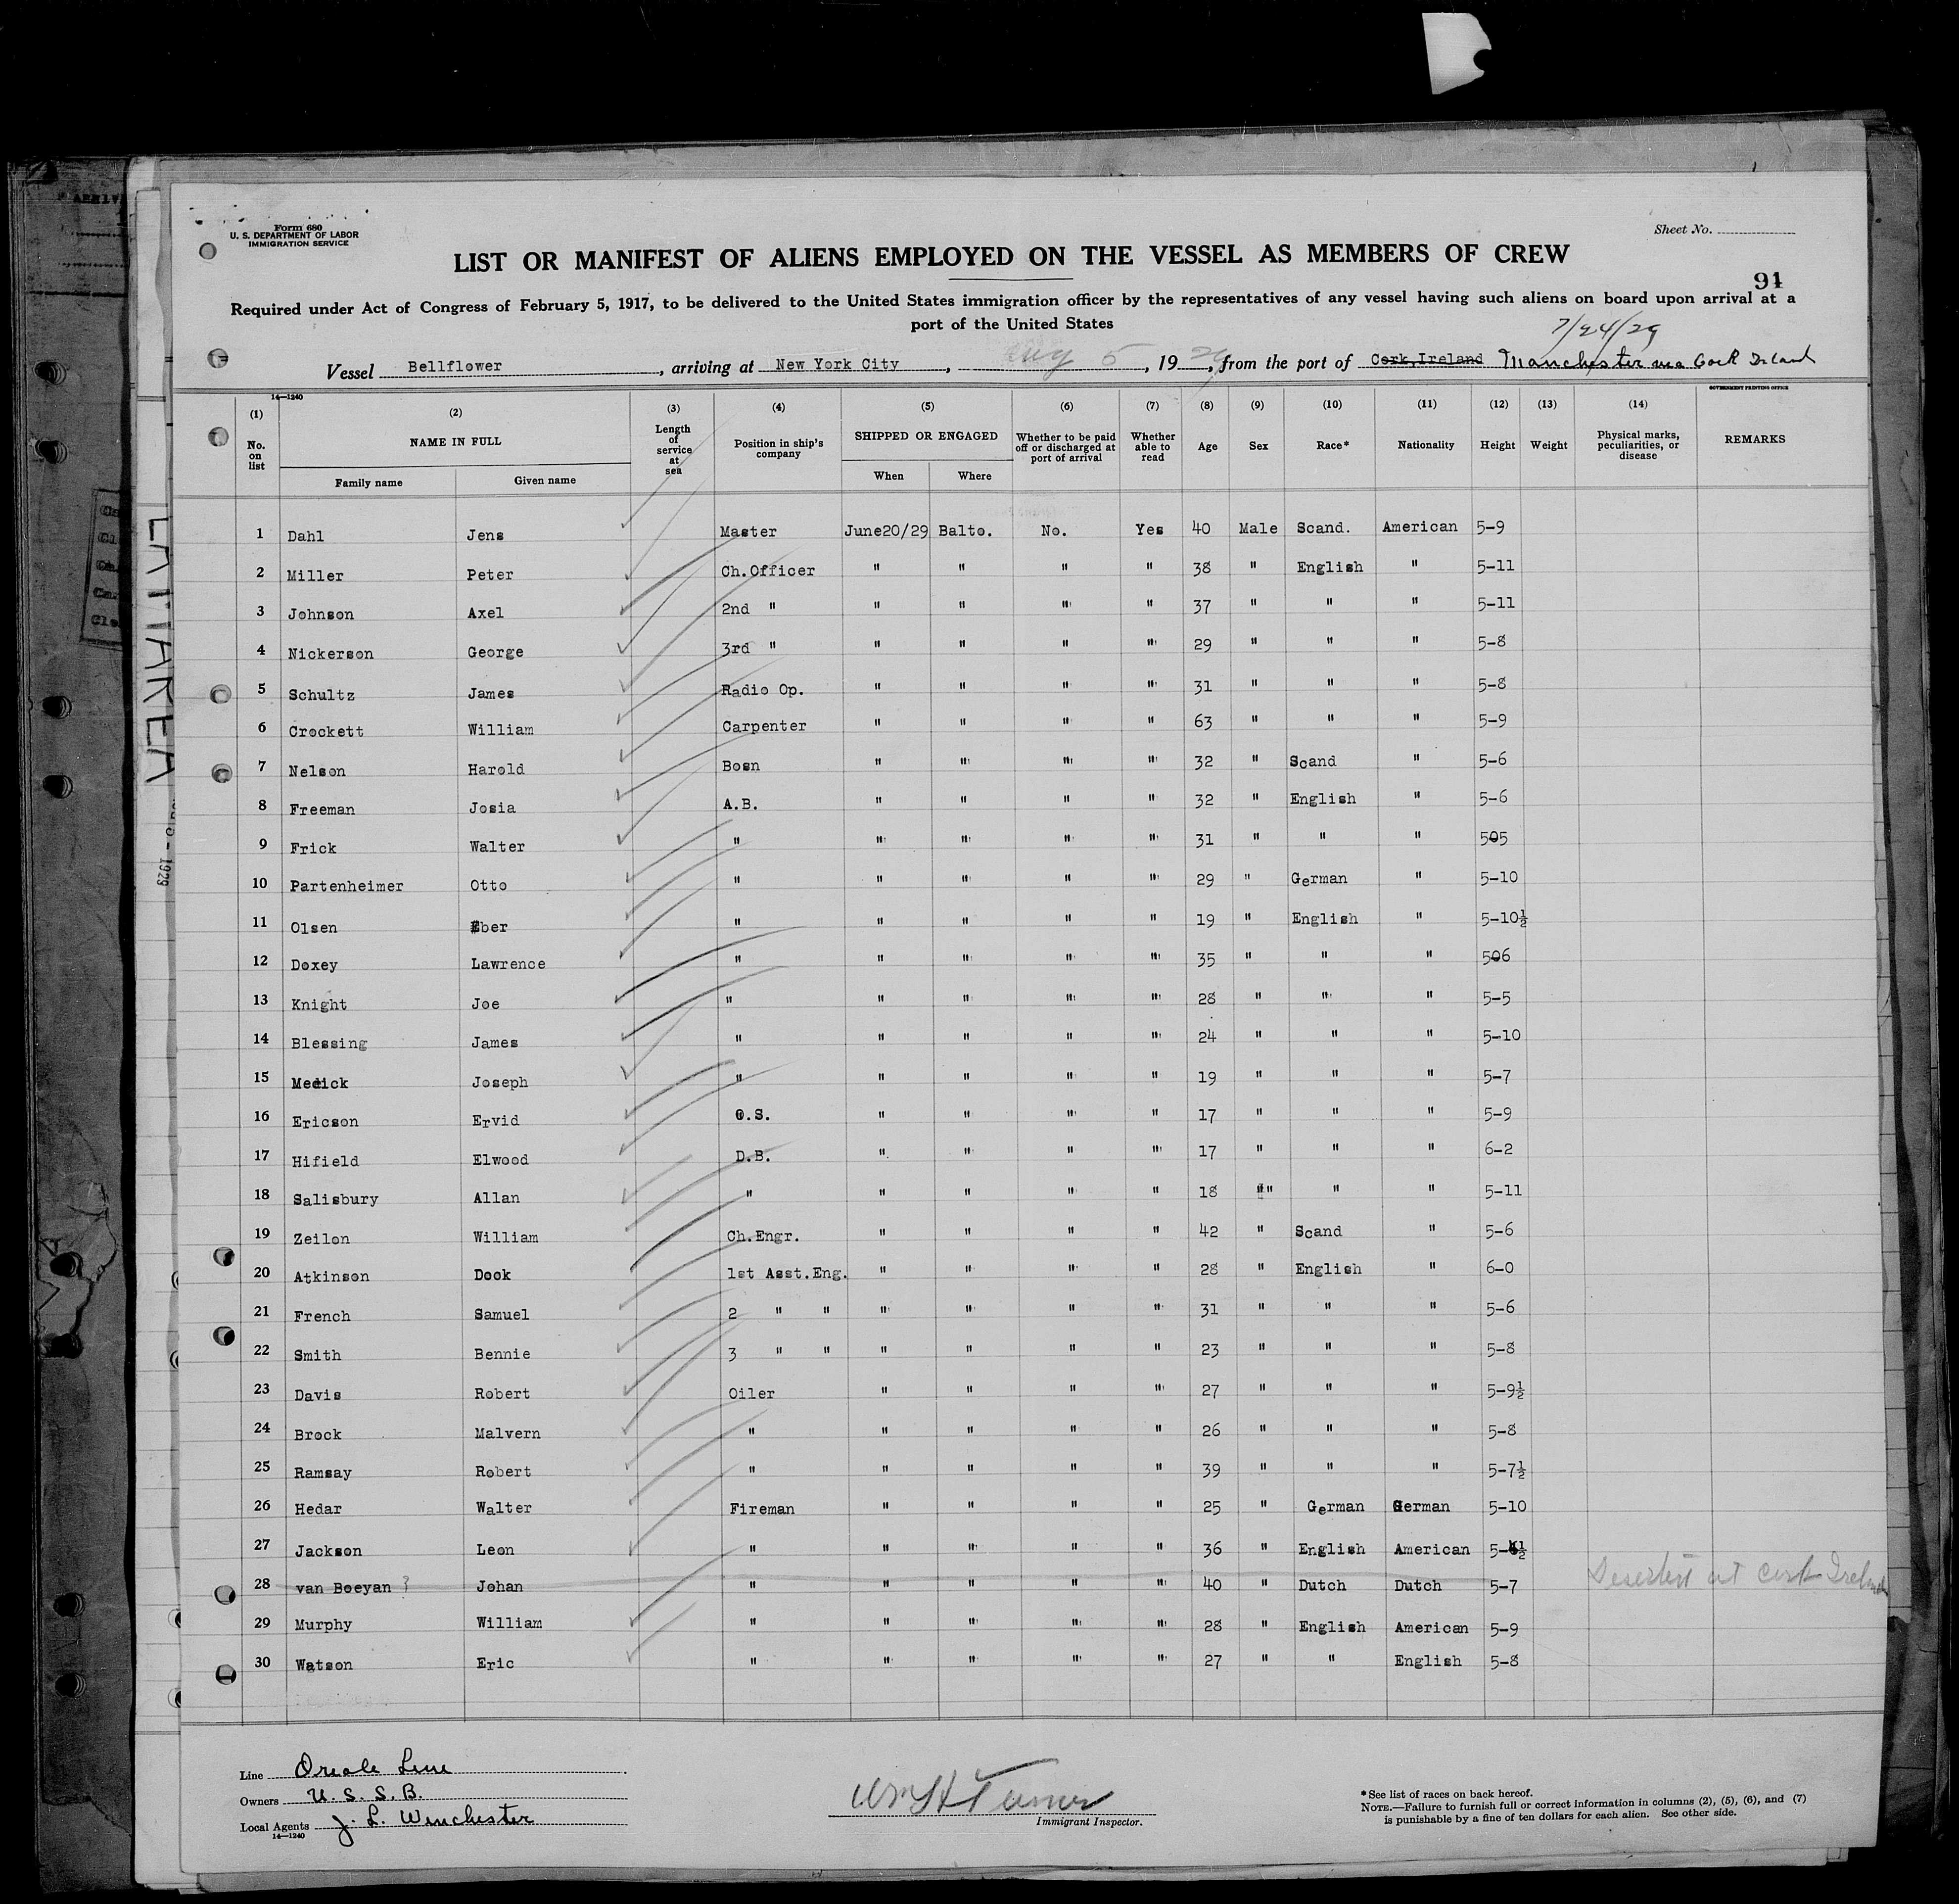 Form 680
U. S. DEPARTMENT OF LABOR
IMMIGRATION SERVICE
Sheet No.
LIST OR MANIFEST OF ALIENS EMPLOYED ON THE VESSEL AS MEMBERS OF CREW
91
Required under Act of Congress of February 5, 1917, to be delivered to the United States immigration officer by the representatives of any vessel having such aliens on board upon arrival at a
port of the United States
7/24/29
Vessel Bellflower, arriving at New York City, Aug 5, 1929, from the port of Cork, Ireland Manchester via Cork Ireland
14—1240
GOVERNMENT PRINTING OFFICE
(1) (2) (3) (4) (5) (6) (7) (8) (9) (10) (11) (12) (13) (14)
No. on list NAME IN FULL Length of service at sea Position in ship's company SHIPPED OR ENGAGED Whether to be paid off or discharged at port of arrival Whether able to read Age Sex Race* Nationality Height Weight Physical marks, peculiarities, or disease REMARKS
Family name Given name When Where
1 Dahl Jens Master June20/29 Balto. No. Yes 40 Male Scand. American 5-9
2 Miller Peter Ch.Officer " " " " 38 " English " 5-11
3 Johnson Axel 2nd " " " " " 37 " " " 5-11
4 Nickerson George 3rd " " " " " 29 " " " 5-8
5 Schultz James Radio Op. " " " " 31 " " " 5-8
6 Crockett William Carpenter " " " " 63 " " " 5-9
7 Nelson Harold Bosn " " " " 32 " Scand " 5-6
8 Freeman Josia A.B. " " " " 32 " English " 5-6
9 Frick Walter " " " " " 31 " " " 505
10 Partenheimer Otto " " " " " 29 " German " 5-10
11 Olsen Eber " " " " " 19 " English " 5-10½
12 Doxey Lawrence " " " " " 35 " " " 506
13 Knight Joe " " " " " 28 " " " 5-5
14 Blessing James " " " " " 24 " " " 5-10
15 Medick Joseph " " " " " 19 " " " 5-7
16 Ericson Ervid O.S. " " " " 17 " " " 5-9
17 Hifield Elwood D.B. " " " " 17 " " " 6-2
18 Salisbury Allan " " " " " 18 " " " 5-11
19 Zeilon William Ch.Engr. " " " " 42 " Scand " 5-6
20 Atkinson Dock 1st Asst.Eng. " " " " 28 " English " 6-0
21 French Samuel 2 " " " " " " 31 " " " 5-6
22 Smith Bennie 3 " " " " " " 23 " " " 5-8
23 Davis Robert Oiler " " " " 27 " " " 5-9½
24 Brock Malvern " " " " " 26 " " " 5-8
25 Ramsay Robert " " " " " 39 " " " 5-7½
26 Hedar Walter Fireman " " " " 25 " German German 5-10
27 Jackson Leon " " " " " 36 " English American
28 van Boeyan ? Johan " " " " " 40 " Dutch Dutch 5-7 Deserted at Cork Ireland
29 Murphy William " " " " " 28 " English American 5-9
30 Watson Eric " " " " " 27 " " English 5-8
Line Oriole Line
Owners U. S. S. B.
Local Agents J. L. Winchester
14—1240
Wm H Turner
Immigrant Inspector.
*See list of races on back hereof.
NOTE.—Failure to furnish full or correct information in columns (2), (5), (6), and (7)
is punishable by a fine of ten dollars for each alien. See other side.
LATTAREA
1929